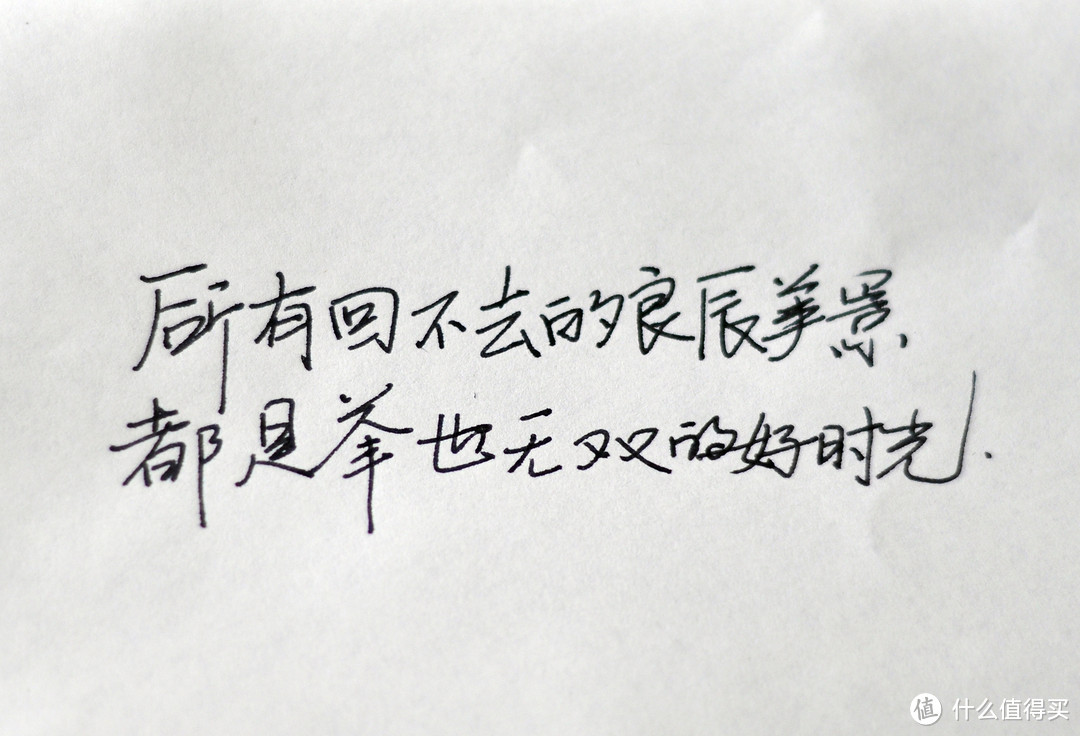 所有回不去的良辰美景
都是举世无双的好时光.
值 什么值得买